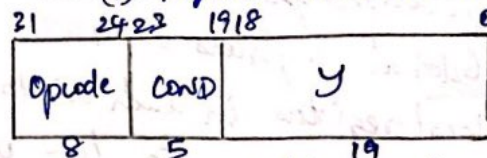 31 2423 1918
Opcode COND y
8 5 19